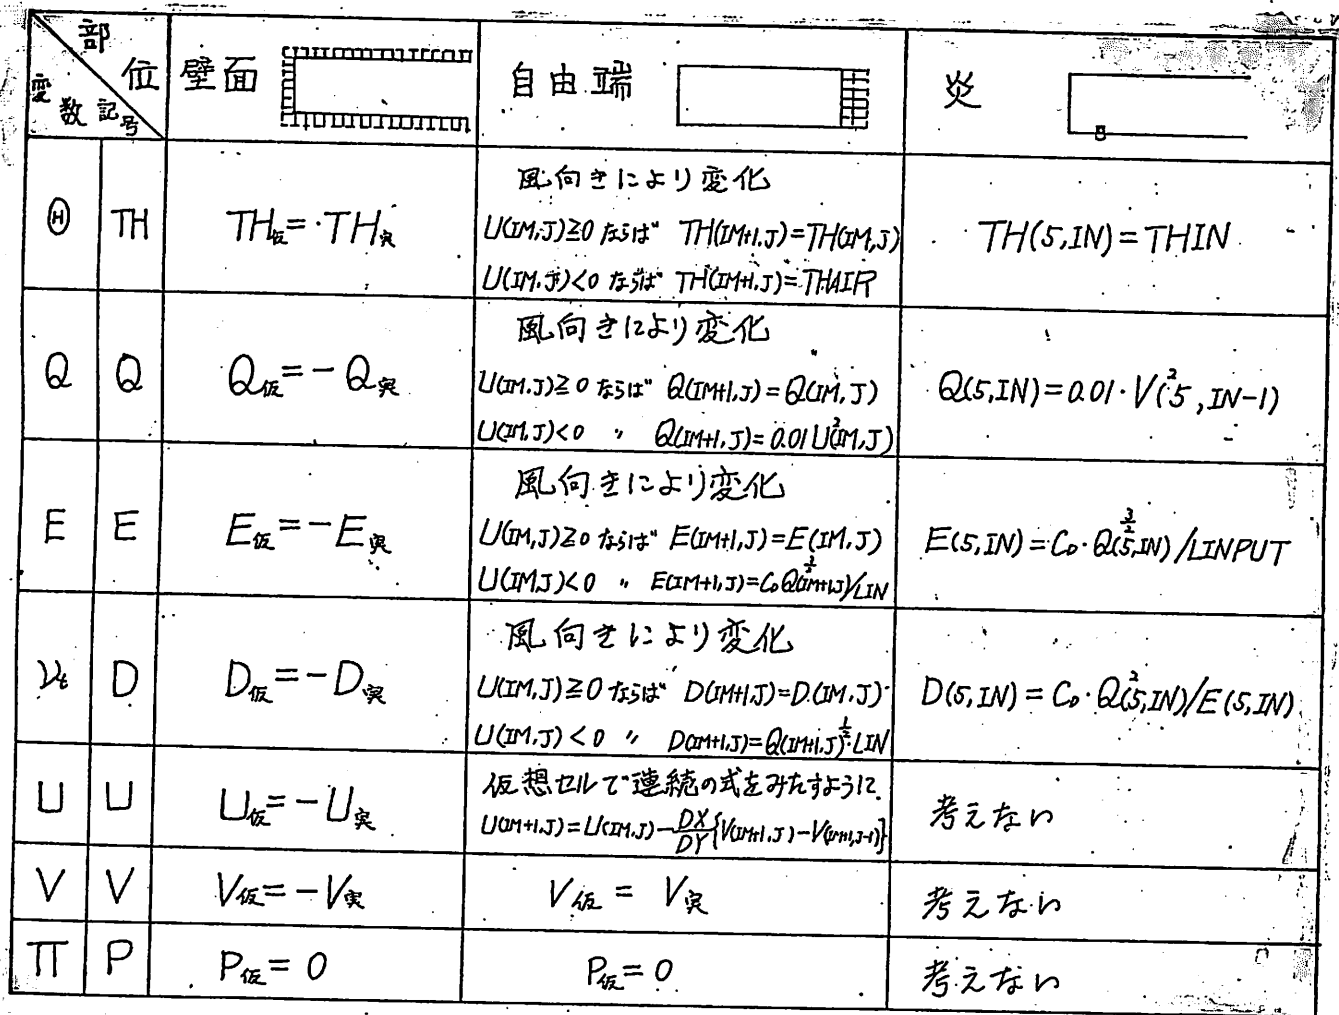 部位 変数記号 壁面 自由端 炎
Ⓗ TH TH仮=TH実
風向きにより変化
U(IM,J)≥0 ならば TH(IM+1,J)=TH(IM,J)
U(IM,J)<0 ならば TH(IM+1,J)=THAIR
TH(5,IN)=THIN
Q Q Q仮=-Q実
風向きにより変化
U(IM,J)≥0 ならば Q(IM+1,J)=Q(IM,J)
U(IM,J)<0 〃 Q(IM+1,J)=0.01U²(IM,J)
Q(5,IN)=0.01·V²(5,IN-1)
E E E仮=-E実
風向きにより変化
U(IM,J)≥0 ならば E(IM+1,J)=E(IM,J)
U(IM,J)<0 〃 E(IM+1,J)=C₀Q^{3/2}(IM+1,J)/LIN
E(5,IN)=C₀·Q^{3/2}(5,IN)/LINPUT
νt D D仮=-D実
風向きにより変化
U(IM,J)≥0 ならば D(IM+1,J)=D(IM,J)
U(IM,J)<0 〃 D(IM+1,J)=Q(IM+1,J)^{1/2}·LIN
D(5,IN)=C₀·Q²(5,IN)/E(5,IN)
U U U仮=-U実
仮想セルで連続の式をみたすように
U(IM+1,J)=U(IM,J)-DX/DY{V(IM+1,J)-V(IM+1,J-1)}
考えない
V V V仮=-V実 V仮=V実 考えない
Π P P仮=0 P仮=0 考えない